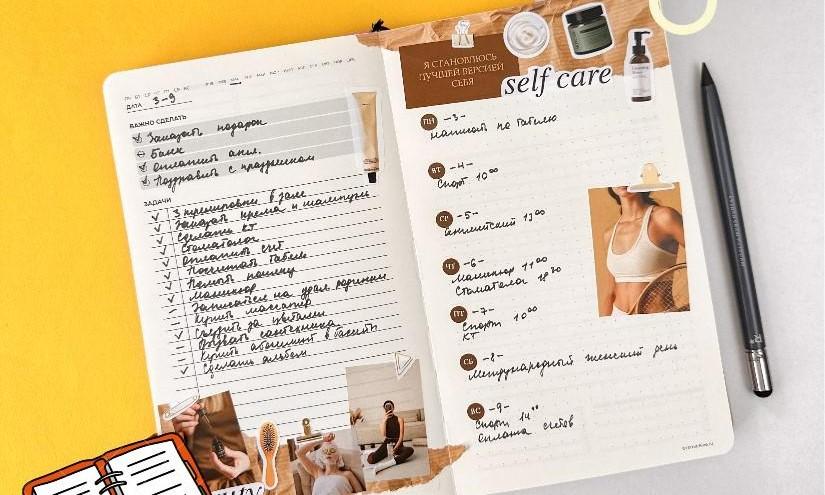 ДАТА 3-9
ВАЖНО СДЕЛАТЬ
Заказать подарок
Банк
Оплатить англ.
Поздравить с праздником
ЗАДАЧИ
3 тренировки в зале
Заказать крема и шампунь
Сделать КТ
Стоматолог
Оплатить счёт
Посчитать Таблю
Помыть машину
Маникюр
Записаться на удал. родинки
Купить массажёр
Съездить за цветами
Вызвать сантехника
Купить абонемент в бассейн
Сделать альбом
Я СТАНОВЛЮСЬ
ЛУЧШЕЙ ВЕРСИЕЙ
СЕБЯ
self care
ПН -3-
написать по Таблю
ВТ -4-
Спорт 10⁰⁰
СР -5-
Английский 13⁰⁰
ЧТ -6-
Маникюр 11⁰⁰
Стоматолог 18³⁰
ПТ -7-
Спорт 10⁰⁰
КТ
СБ -8-
Международный женский день
ВС -9-
Спорт 14⁰⁰
оплата счетов